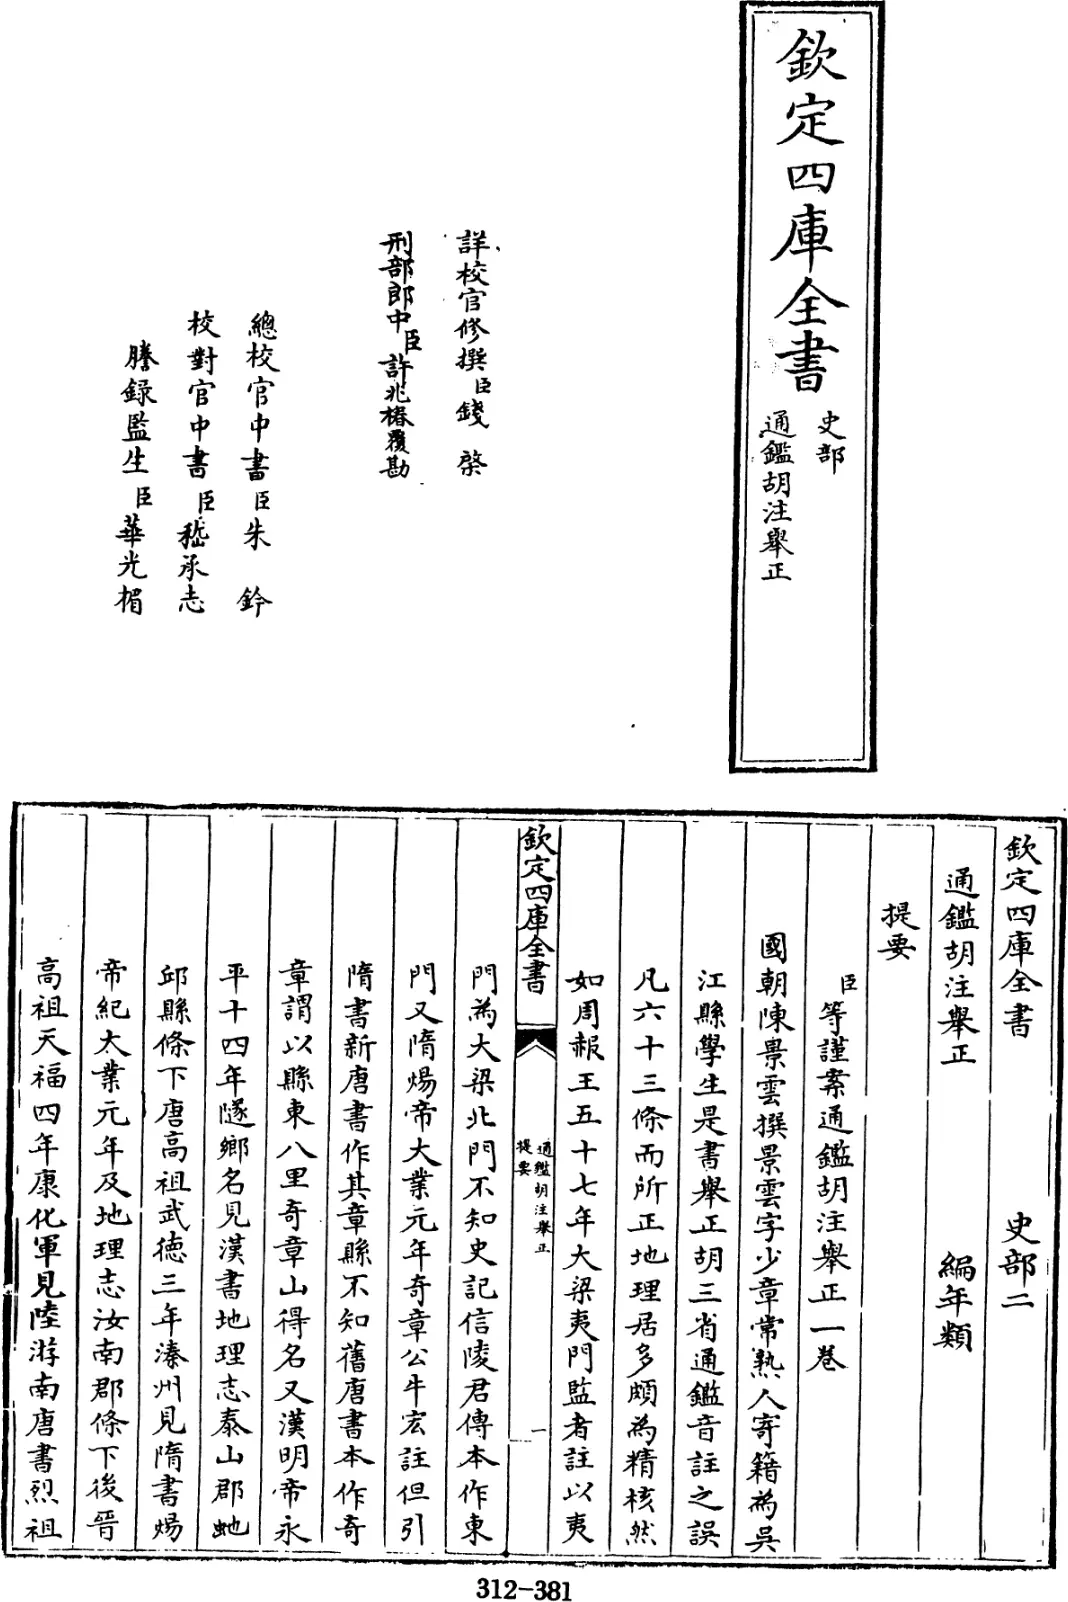 欽定四庫全書
史部
通鑑胡注舉正
詳校官修撰臣錢棨
刑部郎中臣許兆椿覆勘
總校官中書臣朱鈐
校對官中書臣嵇承志
謄錄監生臣華光楣
欽定四庫全書 史部二
通鑑胡注舉正 編年類
提要
臣等謹案通鑑胡注舉正一卷
國朝陳景雲撰景雲字少章常熟人寄籍為吳
江縣學生是書舉正胡三省通鑑音註之誤
凡六十三條而所正地理居多頗為精核然
如周赧王五十七年大梁夷門監者註以夷
欽定四庫全書
通鑑胡注舉正
提要
一
門為大梁北門不知史記信陵君傳本作東
門又隋煬帝大業元年奇章公牛宏註但引
隋書新唐書作其章縣不知舊唐書本作奇
章謂以縣東八里奇章山得名又漢明帝永
平十四年隧鄉名見漢書地理志泰山郡虵
邱縣條下唐高祖武德三年溱州見隋書煬
帝紀大業元年及地理志汝南郡條下後晉
高祖天福四年康化軍見陸游南唐書烈祖
312-381